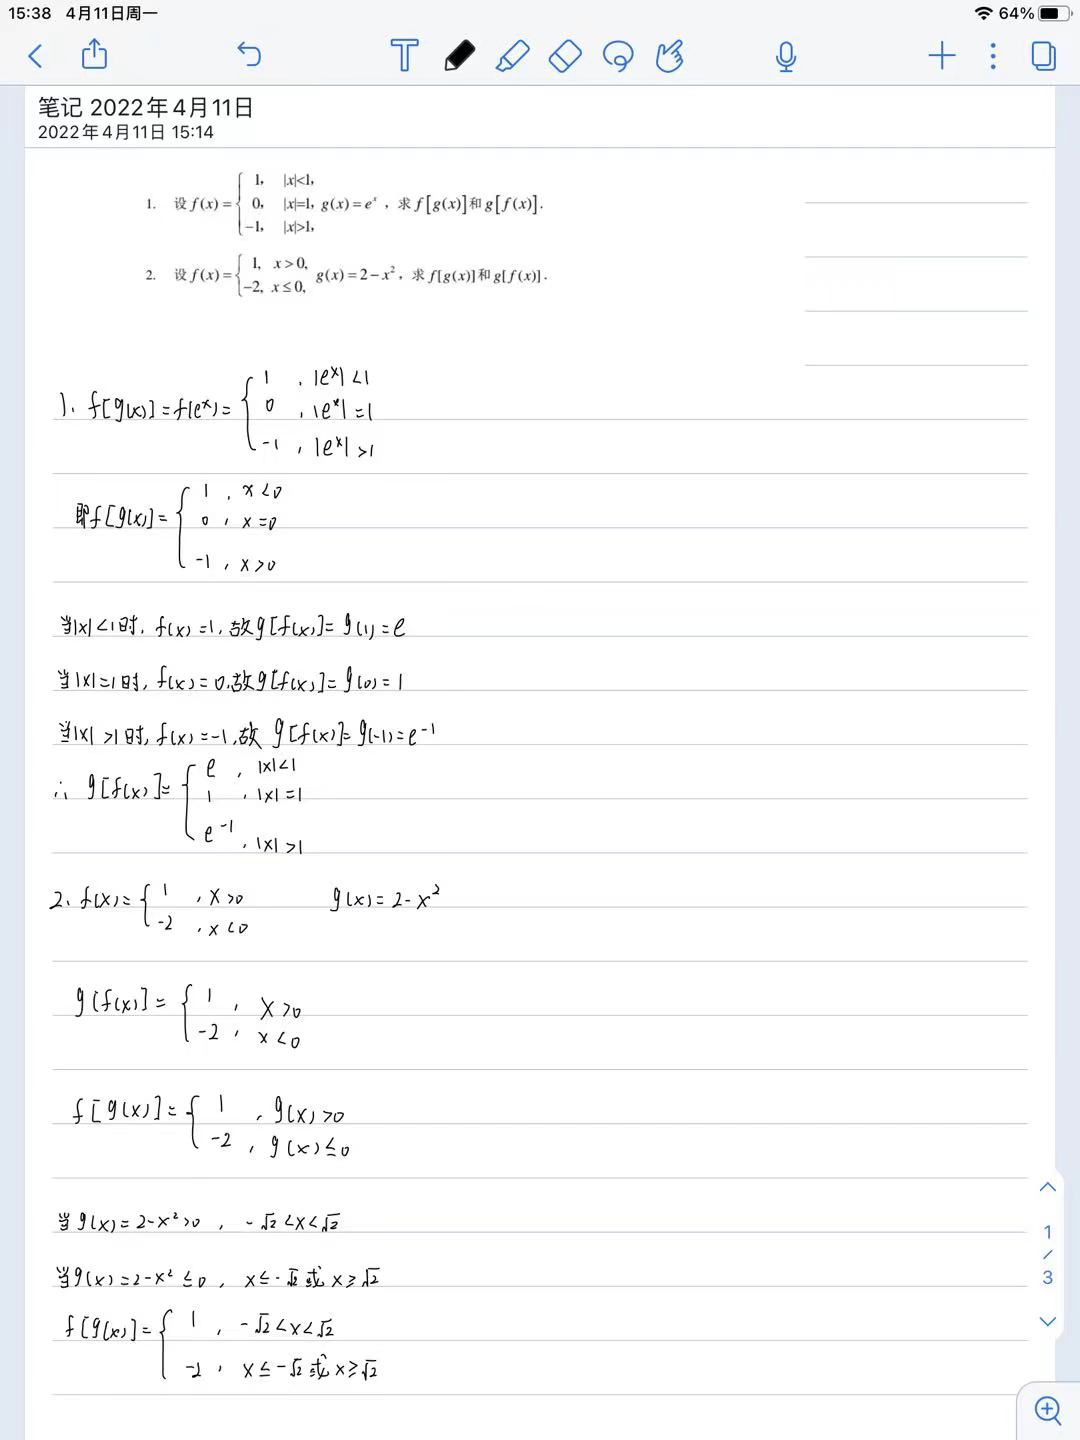 15:38 4月11日周一 64%
笔记 2022年4月11日
2022年4月11日 15:14
1. 设 f(x)={ 1, |x|<1, 0, |x|=1, -1, |x|>1, g(x)=eˣ, 求 f[g(x)] 和 g[f(x)].
2. 设 f(x)={ 1, x>0, -2, x≤0, g(x)=2-x², 求 f[g(x)] 和 g[f(x)].
1、f[g(x)]=f(eˣ)={ 1, |eˣ|<1
0, |eˣ|=1
-1, |eˣ|>1
即f[g(x)]={ 1, x<0
0, x=0
-1, x>0
当|x|<1时, f(x)=1, 故g[f(x)]=g(1)=e
当|x|=1时, f(x)=0,故g[f(x)]=g(0)=1
当|x|>1时, f(x)=-1,故 g[f(x)]=g(-1)=e⁻¹
∴ g[f(x)]={ e, |x|<1
1, |x|=1
e⁻¹, |x|>1
2、f(x)={ 1, x>0 g(x)=2-x²
-2, x<0
g[f(x)]={ 1, x>0
-2, x<0
f[g(x)]={ 1, g(x)>0
-2, g(x)≤0
当g(x)=2-x²>0, -√2<x<√2
当g(x)=2-x²≤0, x≤-√2或x≥√2
f[g(x)]={ 1, -√2<x<√2
-2, x≤-√2或x≥√2
1
/
3